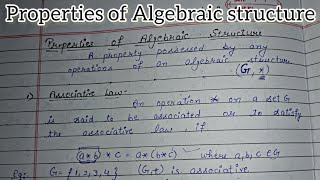 Properties of Algebraic structure
Properties of Algebraic Structure
A property possessed by any
operations of an algebraic structure
(G, *)
1) Associative Law:-
An operation * on a set G
is said to be associated or to satisfy
the associative law, if
(a*b) * c = a*(b*c) where a,b,c ∈ G
Eg: G = {1,2,3,4} (G,+) is associative.